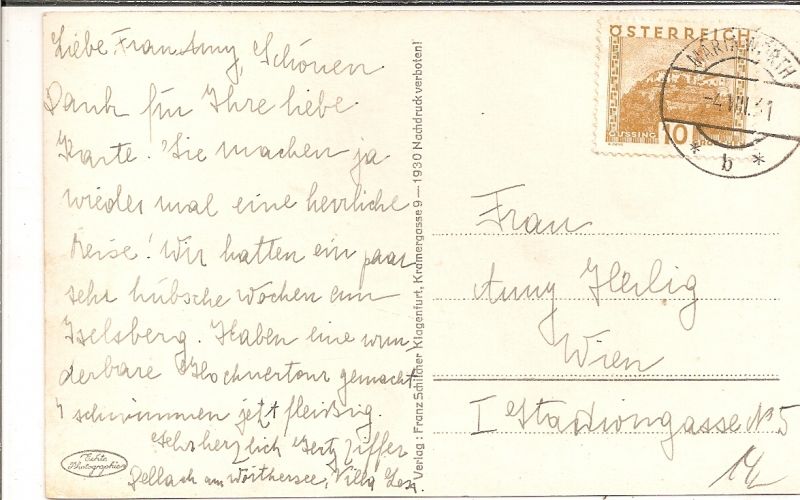 Liebe Frau Amy, Schönen
Dank für Ihre liebe
Karte. Sie machen ja
wieder mal eine herrliche
Reise! Wir hatten ein paar
sehr hübsche Wochen am
Iselsberg. Haben eine wun
derbare Hochnertour gemacht
schwimmen jetzt fleißig.
Sehr herzlich Ziffer
Dellach am Wörthersee, Villa
Echte
Photographie
Verlag: Franz Schildner Klagenfurt, Kramergasse 9 — 1930 Nachdruck verboten!
ÖSTERREICH
GÜSSING 10
MARIA WÖRTH
-4.VIII.31
* b *
Frau
Anny Heilig
Wien
I Stadiongasse No 5